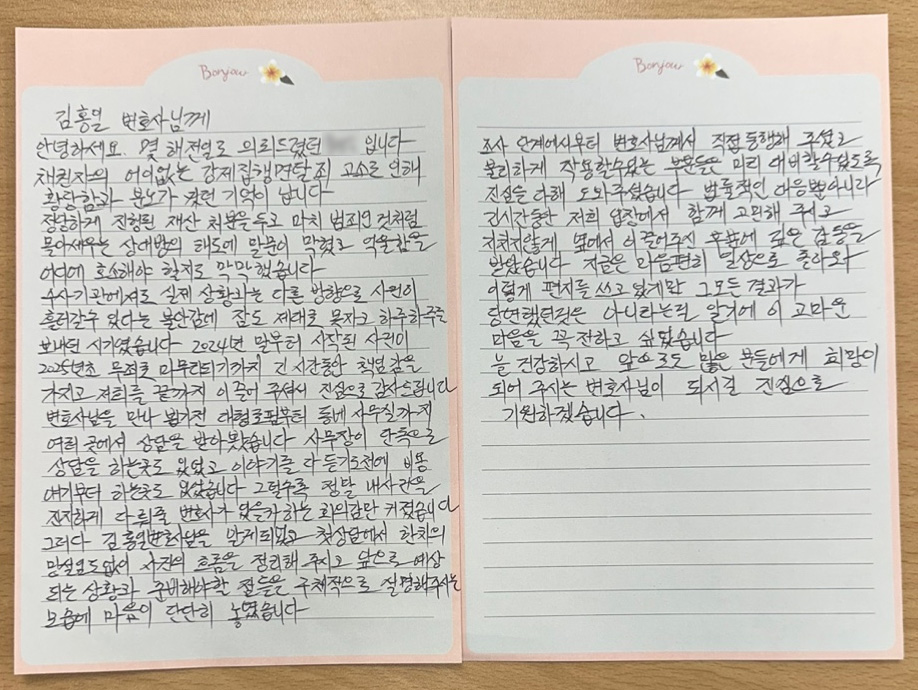 Bonjour
김홍일 변호사님께
안녕하세요. 몇 해전일로 의뢰드렸던 입니다
채권자의 어이없는 강제집행면탈죄 고소로 인해
황당함과 분노가 컸던 기억이 납니다
정당하게 진행된 재산 처분을 두고 마치 범죄인 것처럼
몰아세우는 상대방의 태도에 말문이 막혔고 억울함을
어디에 호소해야 할지도 막막했습니다
수사기관에서도 실제 상황과는 다른 방향으로 사건이
흘러갈수 있다는 불안감에 잠도 제대로 못자고 하루하루를
보내던 시기였습니다 2024년 말부터 시작된 사건이
2025년초 무죄로 마무리되기까지 긴 시간동안 책임감을
가지고 저희를 끝까지 이끌어 주셔서 진심으로 감사드립니다
변호사님을 만나 뵙기전 대형로펌부터 동네 사무실까지
여러 곳에서 상담을 받아봤습니다 사무장이 단독으로
상담을 하는곳도 있었고 이야기를 다 듣기도전에 비용
얘기부터 하는곳도 있었습니다 그럴수록 정말 내사건을
진지하게 다뤄줄 변호사가 있을까하는 회의감만 커졌습니다
그러다 김홍일변호사님을 알게되었고 첫상담에서 한치의
망설임도없이 사건의 흐름을 정리해 주시고 앞으로 예상
되는 상황과 준비해야할 점들을 구체적으로 설명해주시는
모습에 마음이 단단히 놓였습니다
Bonjour
조사 단계에서부터 변호사님께서 직접 동행해 주셨고
불리하게 작용할수있는 부분들은 미리 대비할수있도록
진심을 다해 도와주셨습니다 법률적인 대응뿐아니라
긴시간동안 저희 입장에서 함께 고민해 주시고
지치지않게 옆에서 이끌어주신 부분에 깊은 감동을
받았습니다 지금은 마음편히 일상으로 돌아와
이렇게 편지를 쓰고 있게만 그모든 결과가
당연했던것은 아니라는걸 알기에 이 고마운
마음을 꼭 전하고 싶었습니다
늘 건강하시고 앞으로도 많은 분들에게 희망이
되어 주시는 변호사님이 되시길 진심으로
기원하겠습니다.